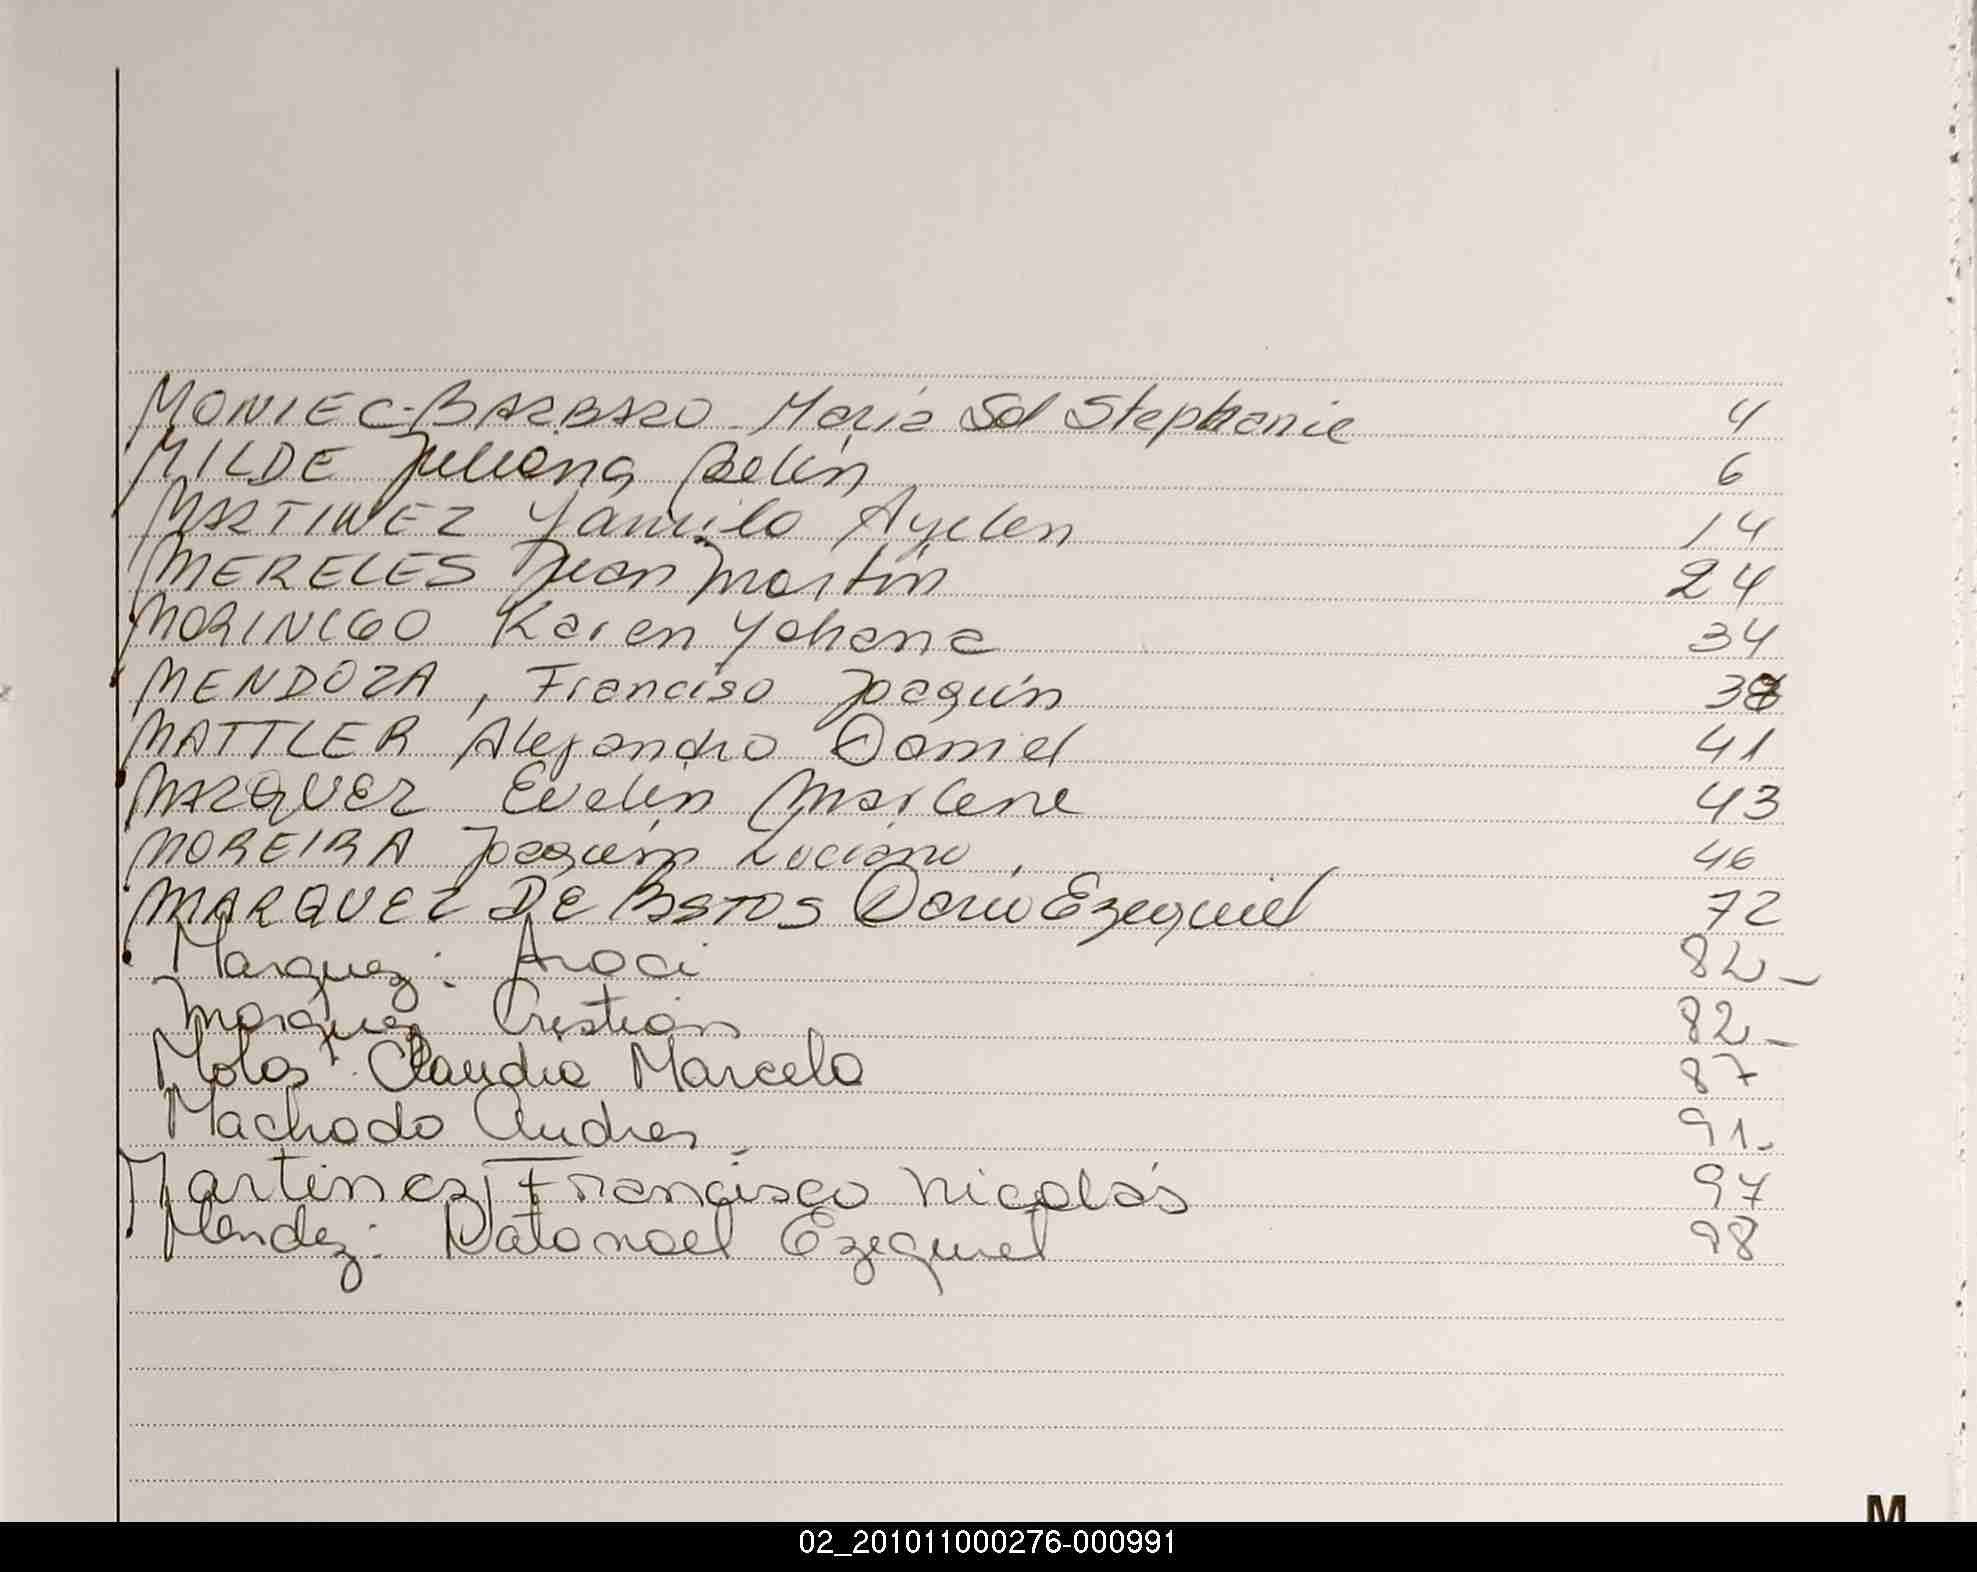 MONIEC-BARBARO María Sol Stephanie 4
MILDE Juliana Belén 6
MARTINEZ Yamila Ayelen 14
MERELES Juan Martín 24
MORINIGO Karen Yohana 34
MENDOZA, Franciso Joaquín 38
MATTLER Alejandro Daniel 41
MARQUEZ Evelin Marlene 43
MOREIRA Joaquín Luciano 46
MARQUEZ DE BASTOS Darío Ezequiel 72
Marquez: Araci 82-
Marquez Cristian 82-
Molas Claudia Marcela 87
Machado Andres 91-
Martinez, Francisco Nicolás 97
Mendez: Natanael Ezequiel 98
M
02_201011000276-000991